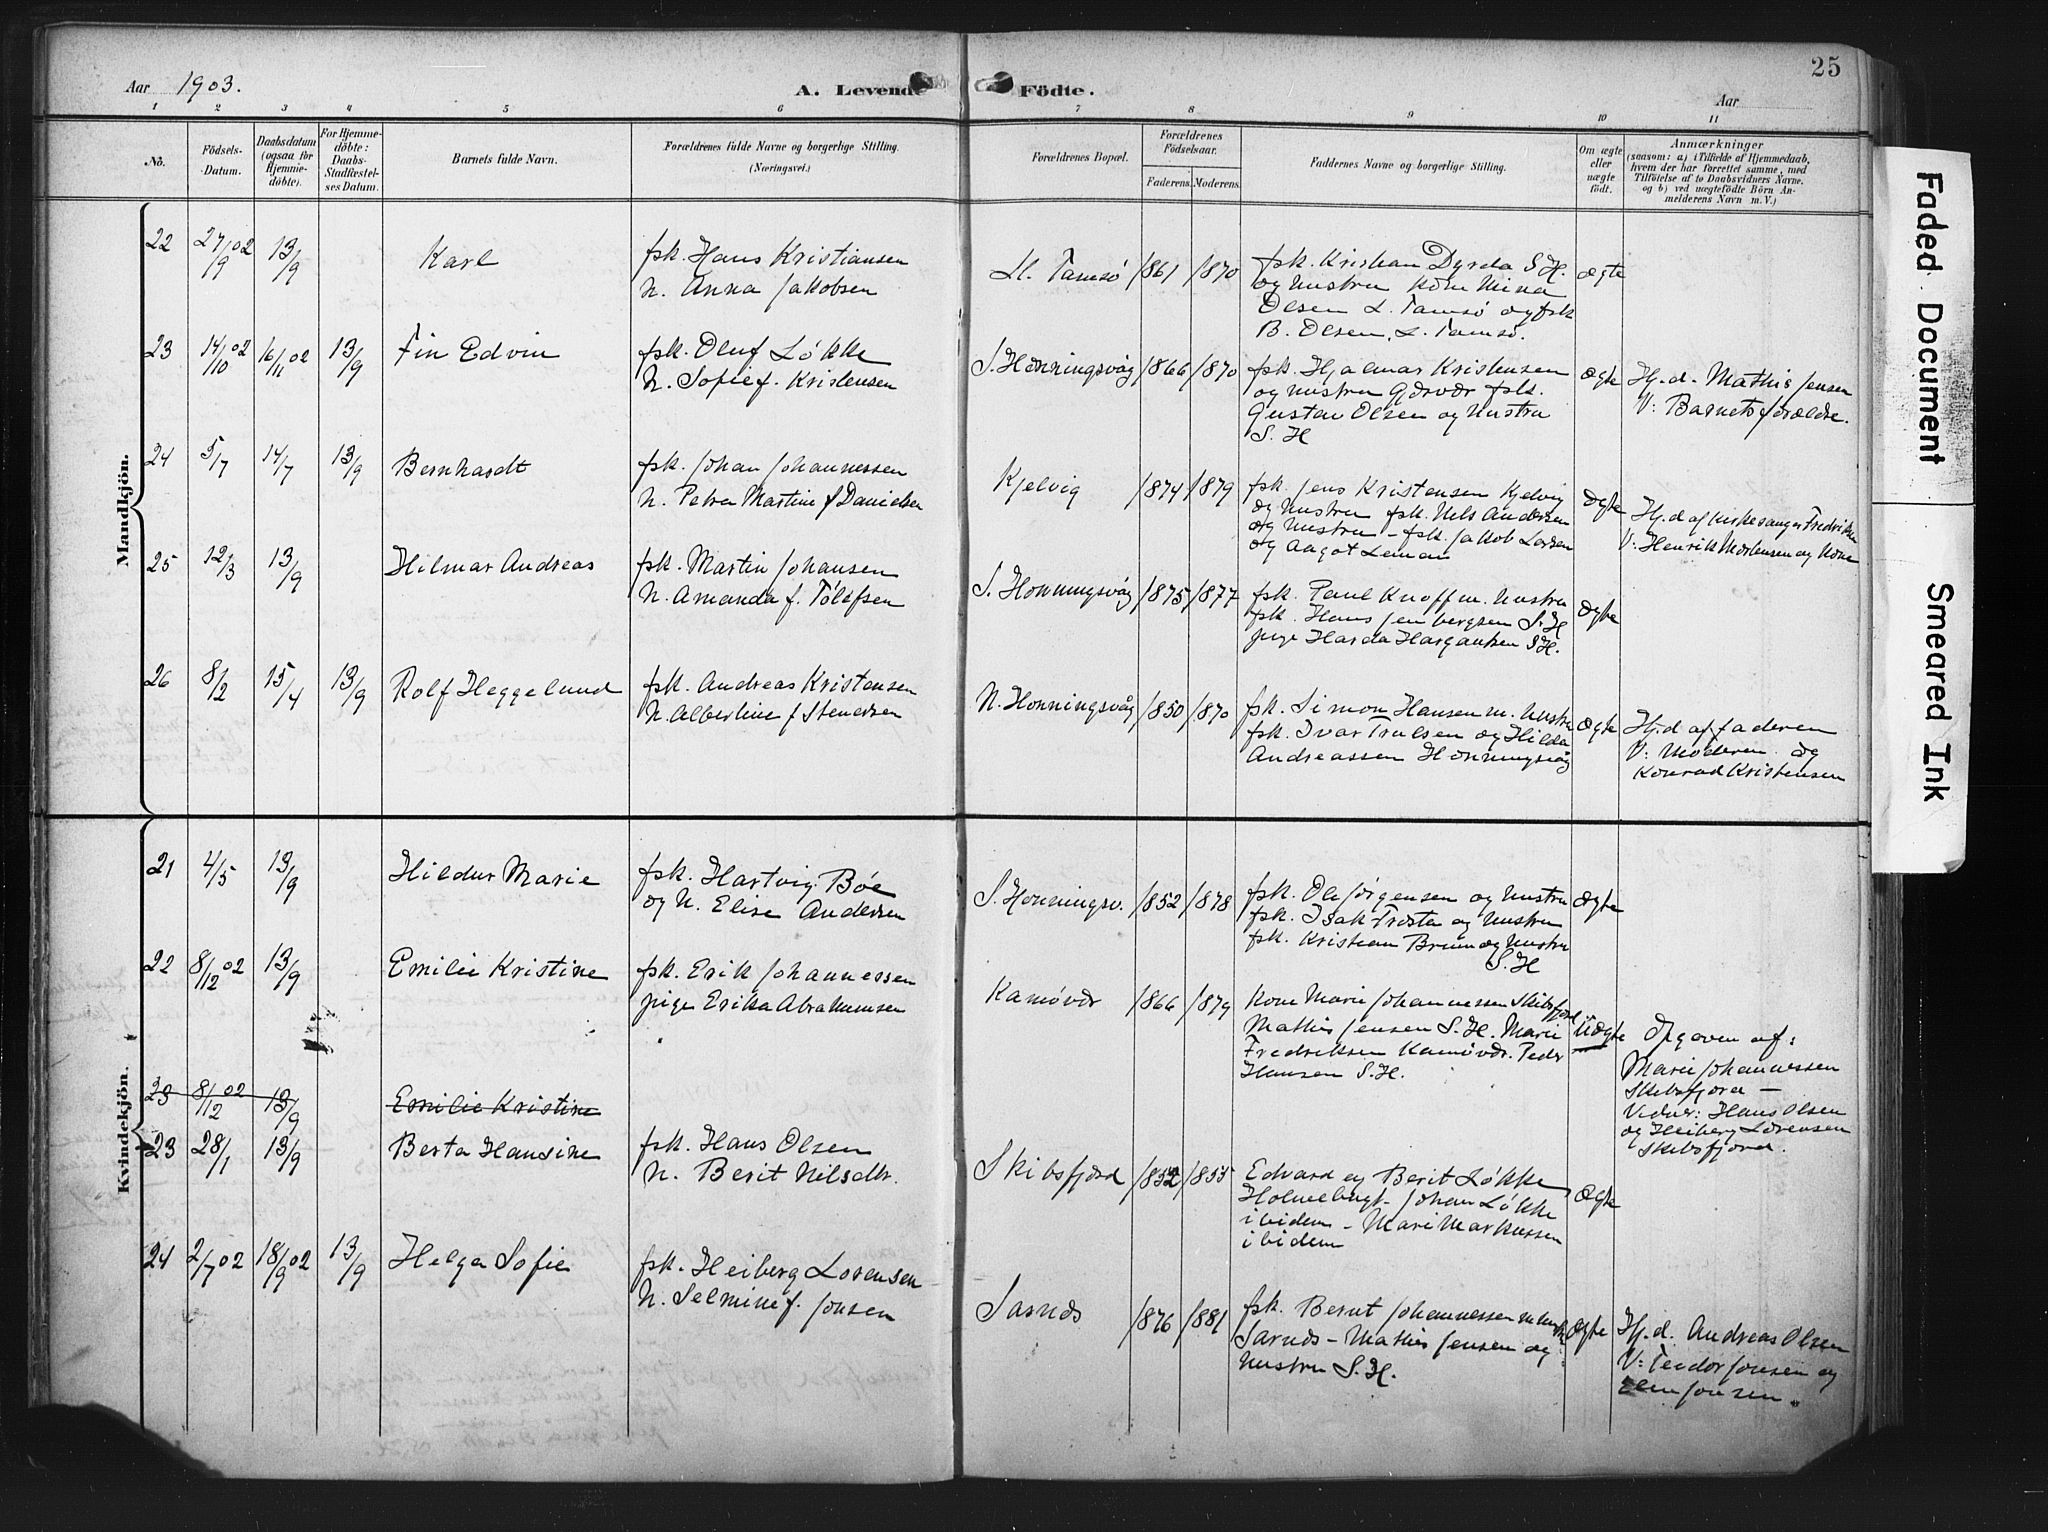 25
Aar 1903.
A. Levende Födte.
Aar
1 2 3 4 5 6 7 8 9 10 11
No.
Födsels-Datum.
Daabsdatum (ogsaa for Hjemmedöbte).
For Hjemmedöbte: Daabs-Stadfæstelses Datum.
Barnets fulde Navn.
Forældrenes fulde Navne og borgerlige Stilling.
(Næringsvei.)
Forældrenes Bopæl.
Forældrenes Födselsaar.
Faderens. Moderens.
Faddernes Navne og borgerlige Stilling.
Om ægte eller uægte födt.
Anmærkninger
(saasom: a) i Tilfælde af Hjemmedaab, hvem der har forrettet samme, med Tilföielse af to Daabsvidners Navne, og b) ved uægtefödte Börn Anmelderens Navn m. V.)
Mandkjön.
22 27/9 02 13/9 Karl
fsk. Hans Kristiansen
H. Anna Jakobsen
L. Tamsø 1861 1870
fsk. Kristian Dyrda S.H.
og hustru kone Mina
Olsen L. Tamsø og fsk
B. Olsen. L. Tamsø.
ægte
23 14/10 02 16/11 02 13/9 Fin Edvin
fsk. Oluf Løkke
H. Sofie f. Kristensen
S. Honningsvåg 1866 1870
fsk. Hjalmar Kristensen
og hustru Gjesvær fsk.
Gustav Olsen og hustru
S. H
ægte
Hj.d. Mathis Jensen
V: Barnets forældre.
24 5/7 14/7 13/9 Bernhardt
fsk. Johan Johannessen
H. Petra Martine f Danielsen
Kjelvig 1874 1879
fsk. Jens Kristensen Kjelvig
og hustru fsk. Nels Andersen
og hustru - fsk. Jakob Larsen
og Aagot Leman
ægte
Hj.d af kirkesanger Fredriksen
V: Henrik Mortensen og kone
25 12/3 13/9 Hilmar Andreas
fsk. Martin Johansen
H. Amanda f. Tølefsen
S. Honningsvåg 1875 1877
fsk. Paul Knoff m. hustru
fsk. Hans Jenbergsen S.H
pige Harda Hargautsen S.H.
ægte
26 8/2 15/4 13/9 Rolf Heggelund
fsk. Andreas Kristensen
H. Albertine f Stenersen
N. Honningsvåg 1850 1870
fsk. Simon Hansen m. hustru
fsk. Ivar Trulsen og Hilda
Andreassen Honningsvåg
ægte
Hj.d af faderen
V: Moderen og
Konrad Kristensen
Kvindekjön.
21 4/5 13/9 Hildur Marie
fsk. Hartvig Bøe
og H. Elise Andersen
S. Honningsv. 1852 1878
fsk. Ole Jörgensen og hustru
fsk. Isak Trosten og hustru
fsk. Kristian Bruun og hustru
S. H
ægte
22 8/12 02 13/9 Emilie Kristine
fsk. Erik Johannessen
pige Erika Abrahamsen
Kamøvær 1866 1879
kone Marie Johannessen Skibsfjord
Mathis Jensen S.H. Marie
Fredriksen Kamøvær. Peder
Hansen S.H.
Uægte
Opgaven af:
Marie Johannessen
Skibsfjord -
Vidner: Hans Olsen
og Heiberg Lorensen
Skibsfjord.
23 8/12 02 13/9 Emilie Kristine
23 28/1 13/9 Berta Hansine
fsk. Hans Olsen
H. Berit Nilsdtr.
Skibsfjord 1852 1855
Edvard og Berit Løkke
Holmebugt - Johan Løkke
ibidem - Mari Markussen
ibidem
ægte
24 2/7 02 18/9 02 13/9 Helga Sofie
fsk. Heiberg Lorensen
H. Selmine f. Jonsen
Sarnes 1876 1881
fsk. Bernt Johannessen m hustru
Sarnes - Mathis Jensen og
hustru S.H.
ægte
Hj.d. Andreas Olsen
V: Teodor Jonsen og
Elen Jonsen.
Faded Document
Smeared Ink